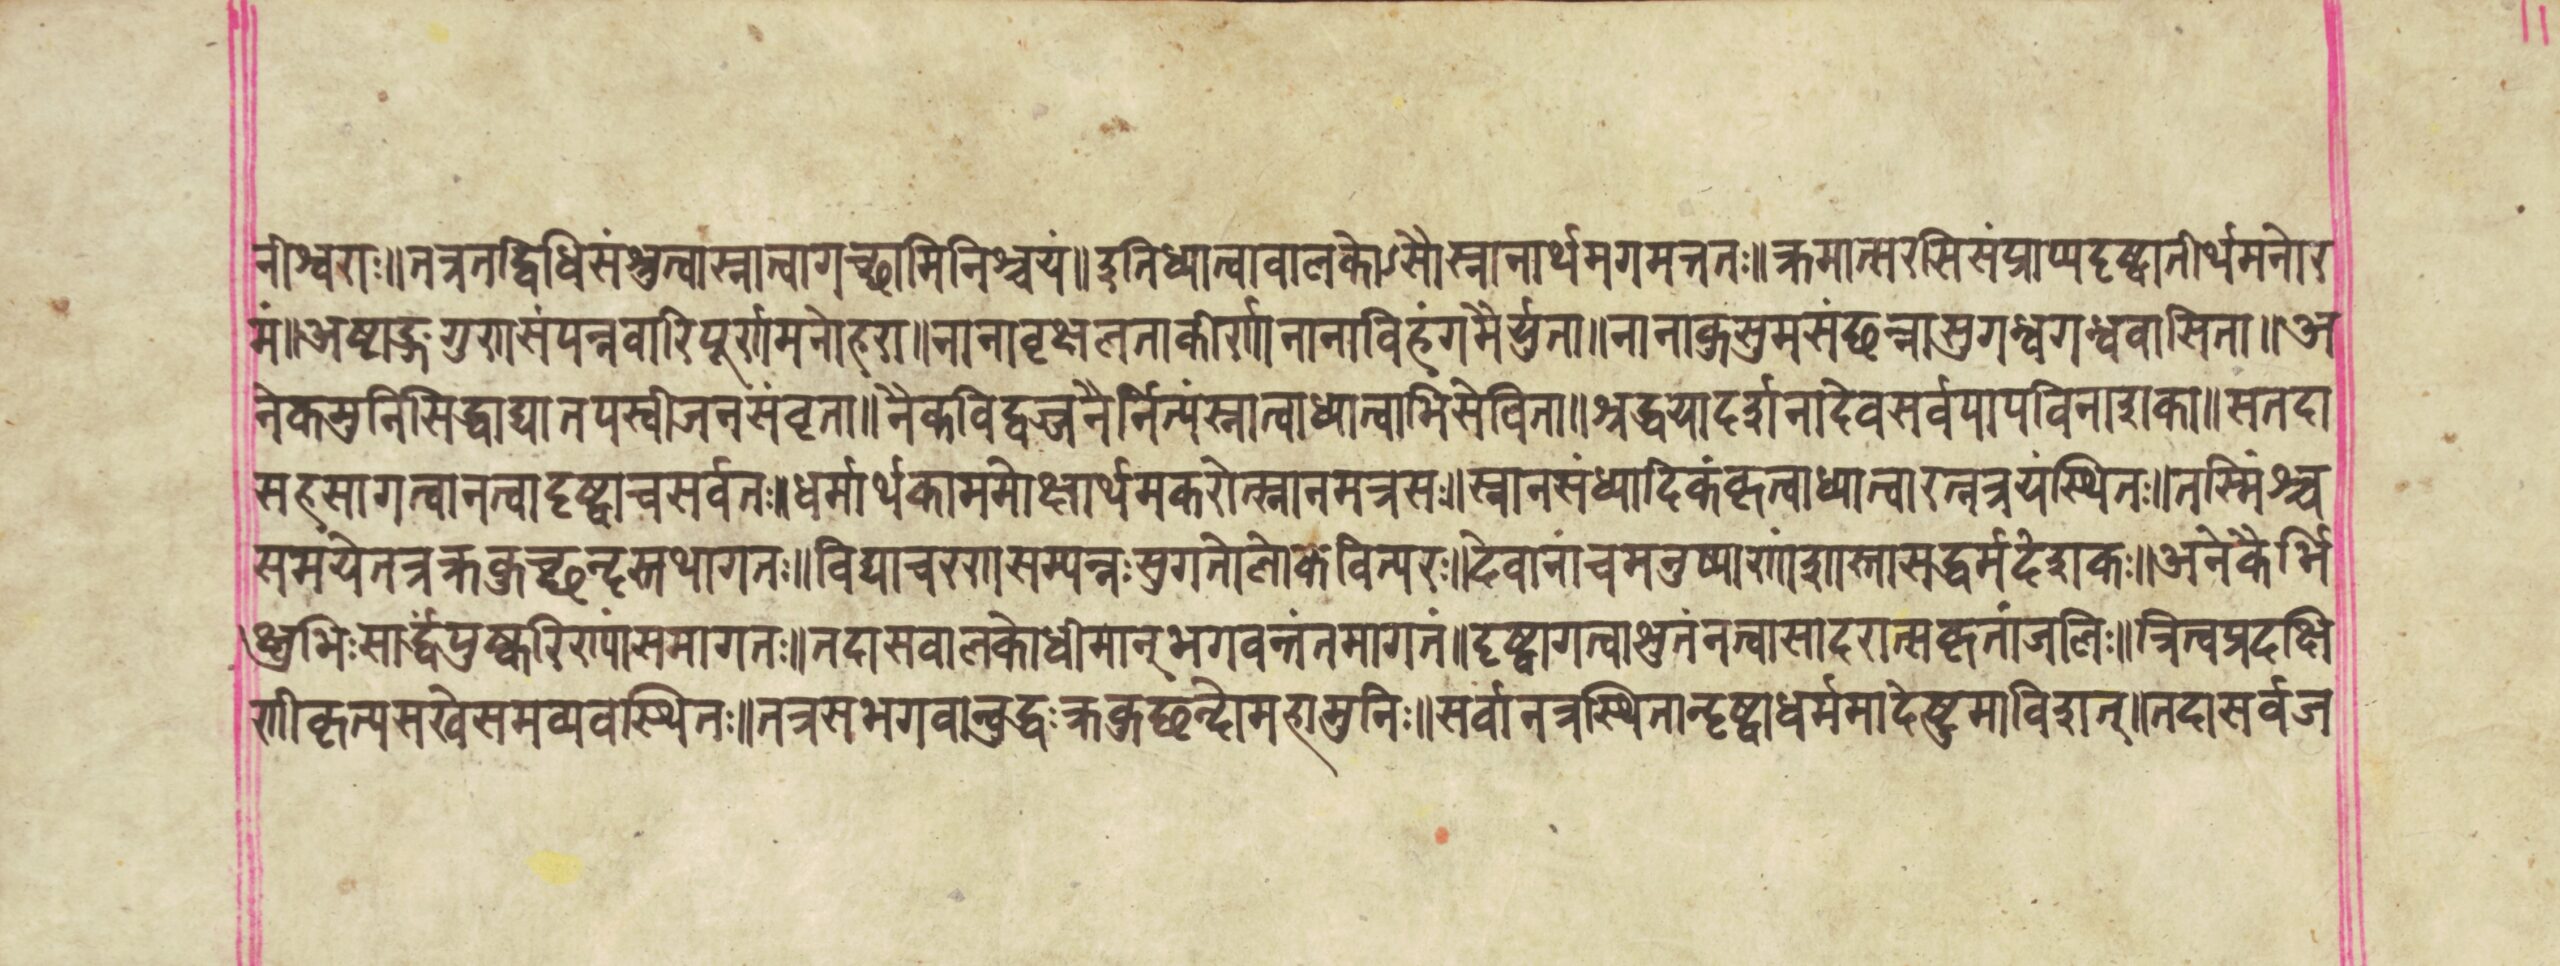 नीश्वराः॥तत्रतद्विधिसंश्रुत्वास्नात्वागच्छामिनिश्चयं॥इतिध्यात्वावालकोऽसौस्नानार्थमगमत्ततः॥क्रमात्सरसिसंप्राप्यदृष्ट्वातीर्थमनोर
मं॥अष्टाङ्गगुणसंपन्नवारिपूर्णमनोहरा॥नानावृक्षलताकीर्णानानाविहंगमैर्युता॥नानाकुसुमसंछन्नासुगन्धगन्धवासिता॥अ
नेकमुनिसिद्धाद्यातपस्वीजनसंवृता॥नैकविद्वज्जनैर्नित्यंस्नात्वाध्यात्वाभिसेविता॥श्रद्धयादर्शनादेवसर्वपापविनाशका॥सतदा
सहसागत्वानत्वादृष्ट्वाचसर्वतः॥धर्मार्थकाममोक्षार्थमकरोत्स्नानमत्रसः॥स्नानसंध्यादिकंकृत्वाध्यात्वारत्नत्रयंस्थितः॥तस्मिंश्च
समयेतत्रक्रकुच्छन्दस्तथागतः॥विद्याचरणसम्पन्नःसुगतोलोकवित्परः॥देवानांचमनुष्याणांशास्तासद्धर्मदेशकः॥अनेकैर्भि
क्षुभिःसार्द्धंपुष्करिण्यांसमागतः॥तदासवालकोधीमान्भगवन्तंतमागतं॥दृष्ट्वागत्वाश्रुतंनत्वासादरात्सकृतांजलिः॥त्रित्वप्रदक्षि
णीकृत्यसखेसमव्यवस्थितः॥तत्रसभगवान्वुद्धःक्रकुछन्दोमहामुनिः॥सर्वान्तत्रस्थितान्दृष्ट्वाधर्ममादेष्टुमाविशन्॥तदासर्वज